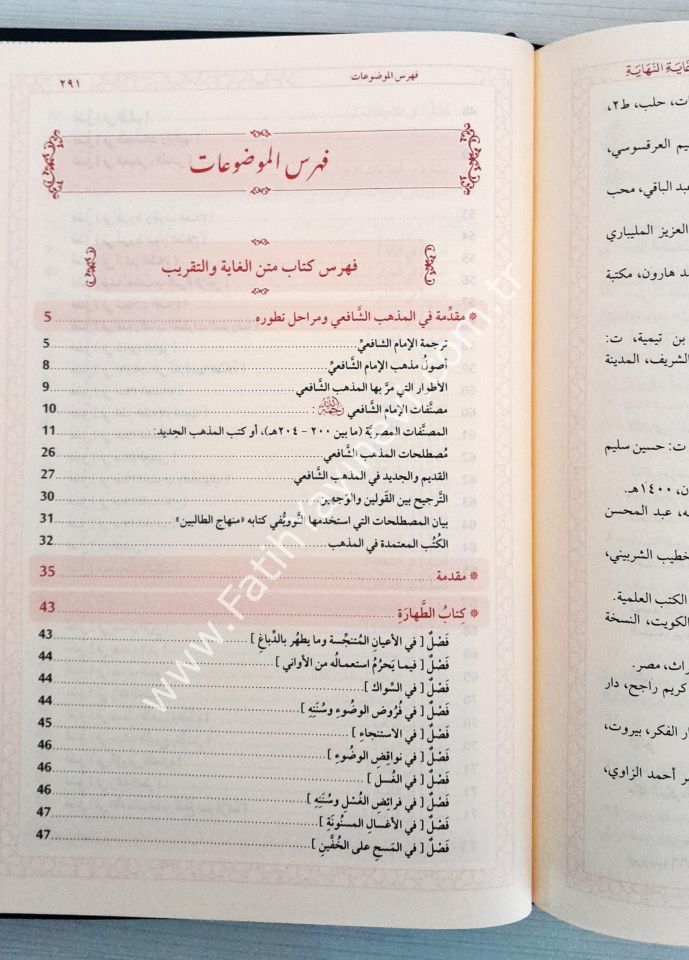 فهرس الموضوعات
٢٩١
فهرس الموضوعات
فهرس كتاب متن الغاية والتقريب
مقدِّمة في المذهب الشَّافعي ومراحل تطوره 5
ترجمة الإمام الشافعيِّ 5
أصولُ مذهب الإمام الشَّافعيِّ 8
الأطوار التي مرَّ بها المذهب الشَّافعي 9
مصنَّفات الإمام الشَّافعي رحمه الله : 10
المصنَّفات المصريَّة (ما بين ٢٠٠ - ٢٠٤هـ)، أو كتب المذهب الجديد: 11
مُصطلحات المذهب الشَّافعي 26
القديم والجديد في المذهب الشَّافعي 27
التَّرجيح بين القَولين والوَجهين 30
بيان المصطلحات التي استخدمها النَّوويُّ في كتابه «منهاج الطالبين» 31
الكُتُب المعتمدة في المذهب 32
مقدمة 35
كتابُ الطَّهارَةِ 43
فَصْلٌ [ في الأعيانِ المُتنجِّسة وما يطهُر بالدِّباغِ ] 43
فَصْلٌ [ فيما يَحرُمُ استعمالُه من الأواني ] 44
فَصْلٌ [ في السِّواك ] 44
فَصْلٌ [ في فُرُوض الوضُوءِ وسُنَنِهِ ] 44
فَصْلٌ [ في الاستنجاءِ ] 45
فَصْلٌ [ في نواقِضِ الوضُوءِ ] 46
فَصْلٌ [ في الغُسل ] 46
فَصْلٌ [ في فرائِضِ الغُسْلِ وسُنَنِهِ ] 46
فَصْلٌ [ في الأغسالِ المسنُونَةِ ] 47
فَصْلٌ [ في المَسحِ على الخُفَّينِ ] 47
www.FatihYayinevi.com.tr
غاية النهاية
حلب، ط٢،
العرقسوسي،
الباقي، محب
العزيز المليباري
هارون، مكتبة
بن تيمية، ت:
الشريف، المدينة
ت: حسين سليم
١٤٠٠هـ.
عبد المحسن
الشربيني،
الكتب العلمية.
الكويت، النسخة
مصر.
كريم راجح، دار
الفكر، بيروت،
أحمد الزاوي،